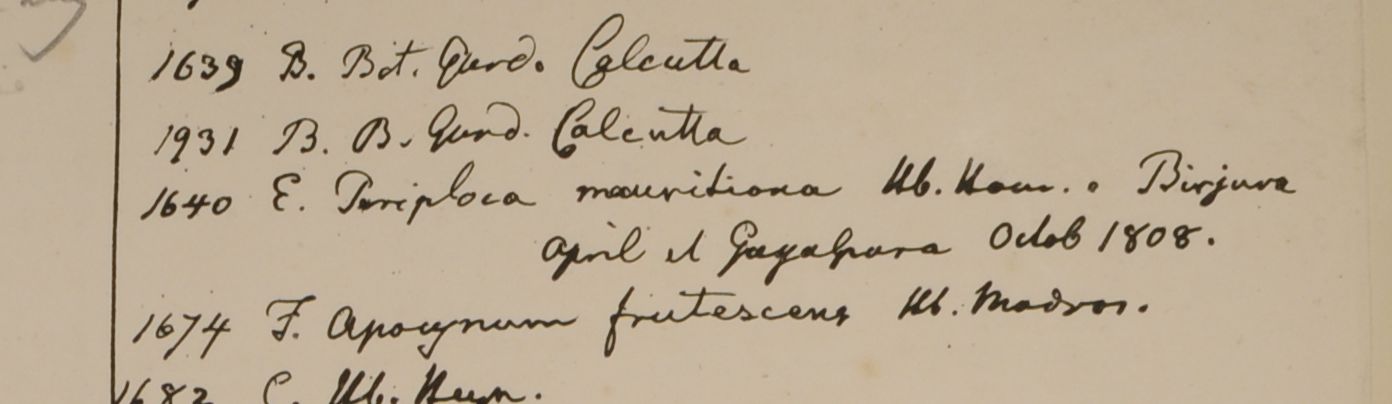 1639 B. Bot. Gard. Calcutta
1931 B. B. Gard. Calcutta
1640 E. Periploca mauritiana Hb. Ham. o Birjura
April et Gayalpara Octob 1808.
1674 F. Apocynum frutescens Hb. Madras.
1682 C. Hb. Heyn.